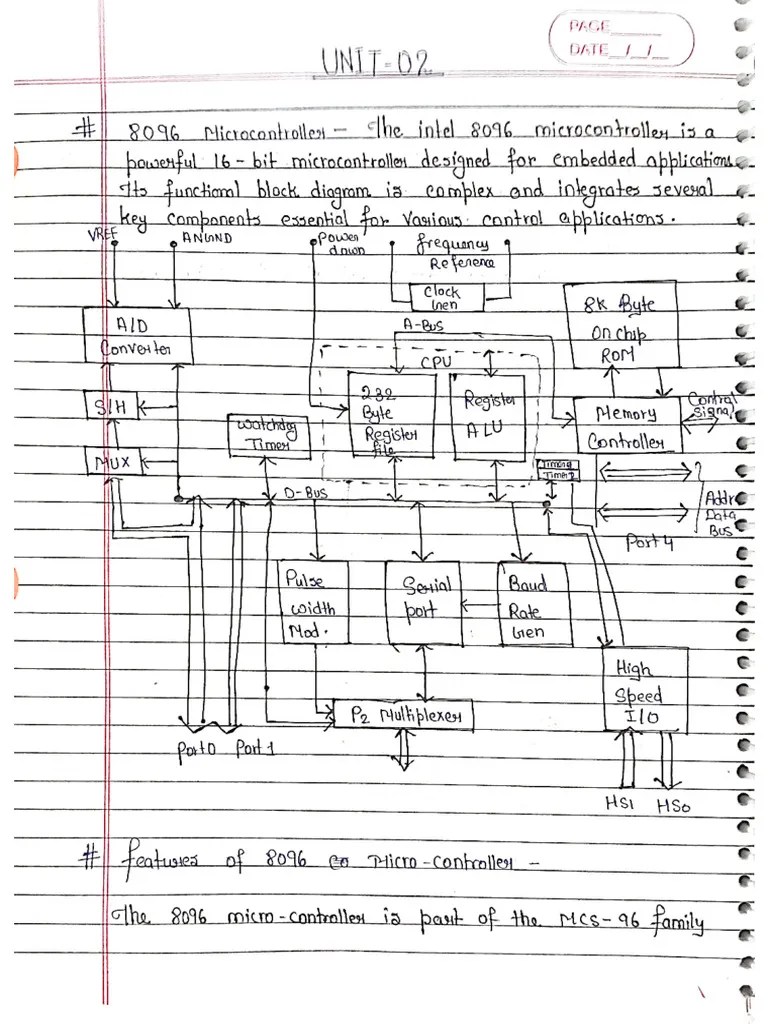 PAGE
DATE _/_/_
UNIT-02
# 8096 Microcontroller - The intel 8096 microcontroller is a
powerful 16-bit microcontroller designed for embedded applications.
Its functional block diagram is complex and integrates several
key components essential for various control applications.
VREF
ANGND
Power
down
frequency
Reference
Clock
Gen
A/D
Converter
8K Byte
On chip
ROM
A-Bus
CPU
S/H
232
Byte
Register
file
Register
ALU
Memory
Controller
Control
Signal
Watchdog
Timer
MUX
Timer 2
D-Bus
Addr
Data
Bus
Port 4
Pulse
Width
Mod.
Serial
port
Baud
Rate
Gen
High
Speed
I/O
P2 Multiplexer
Port0
Port 1
HS1
HSO
# features of 8096 Micro-Controller -
The 8096 micro-controller is part of the MCS-96 family